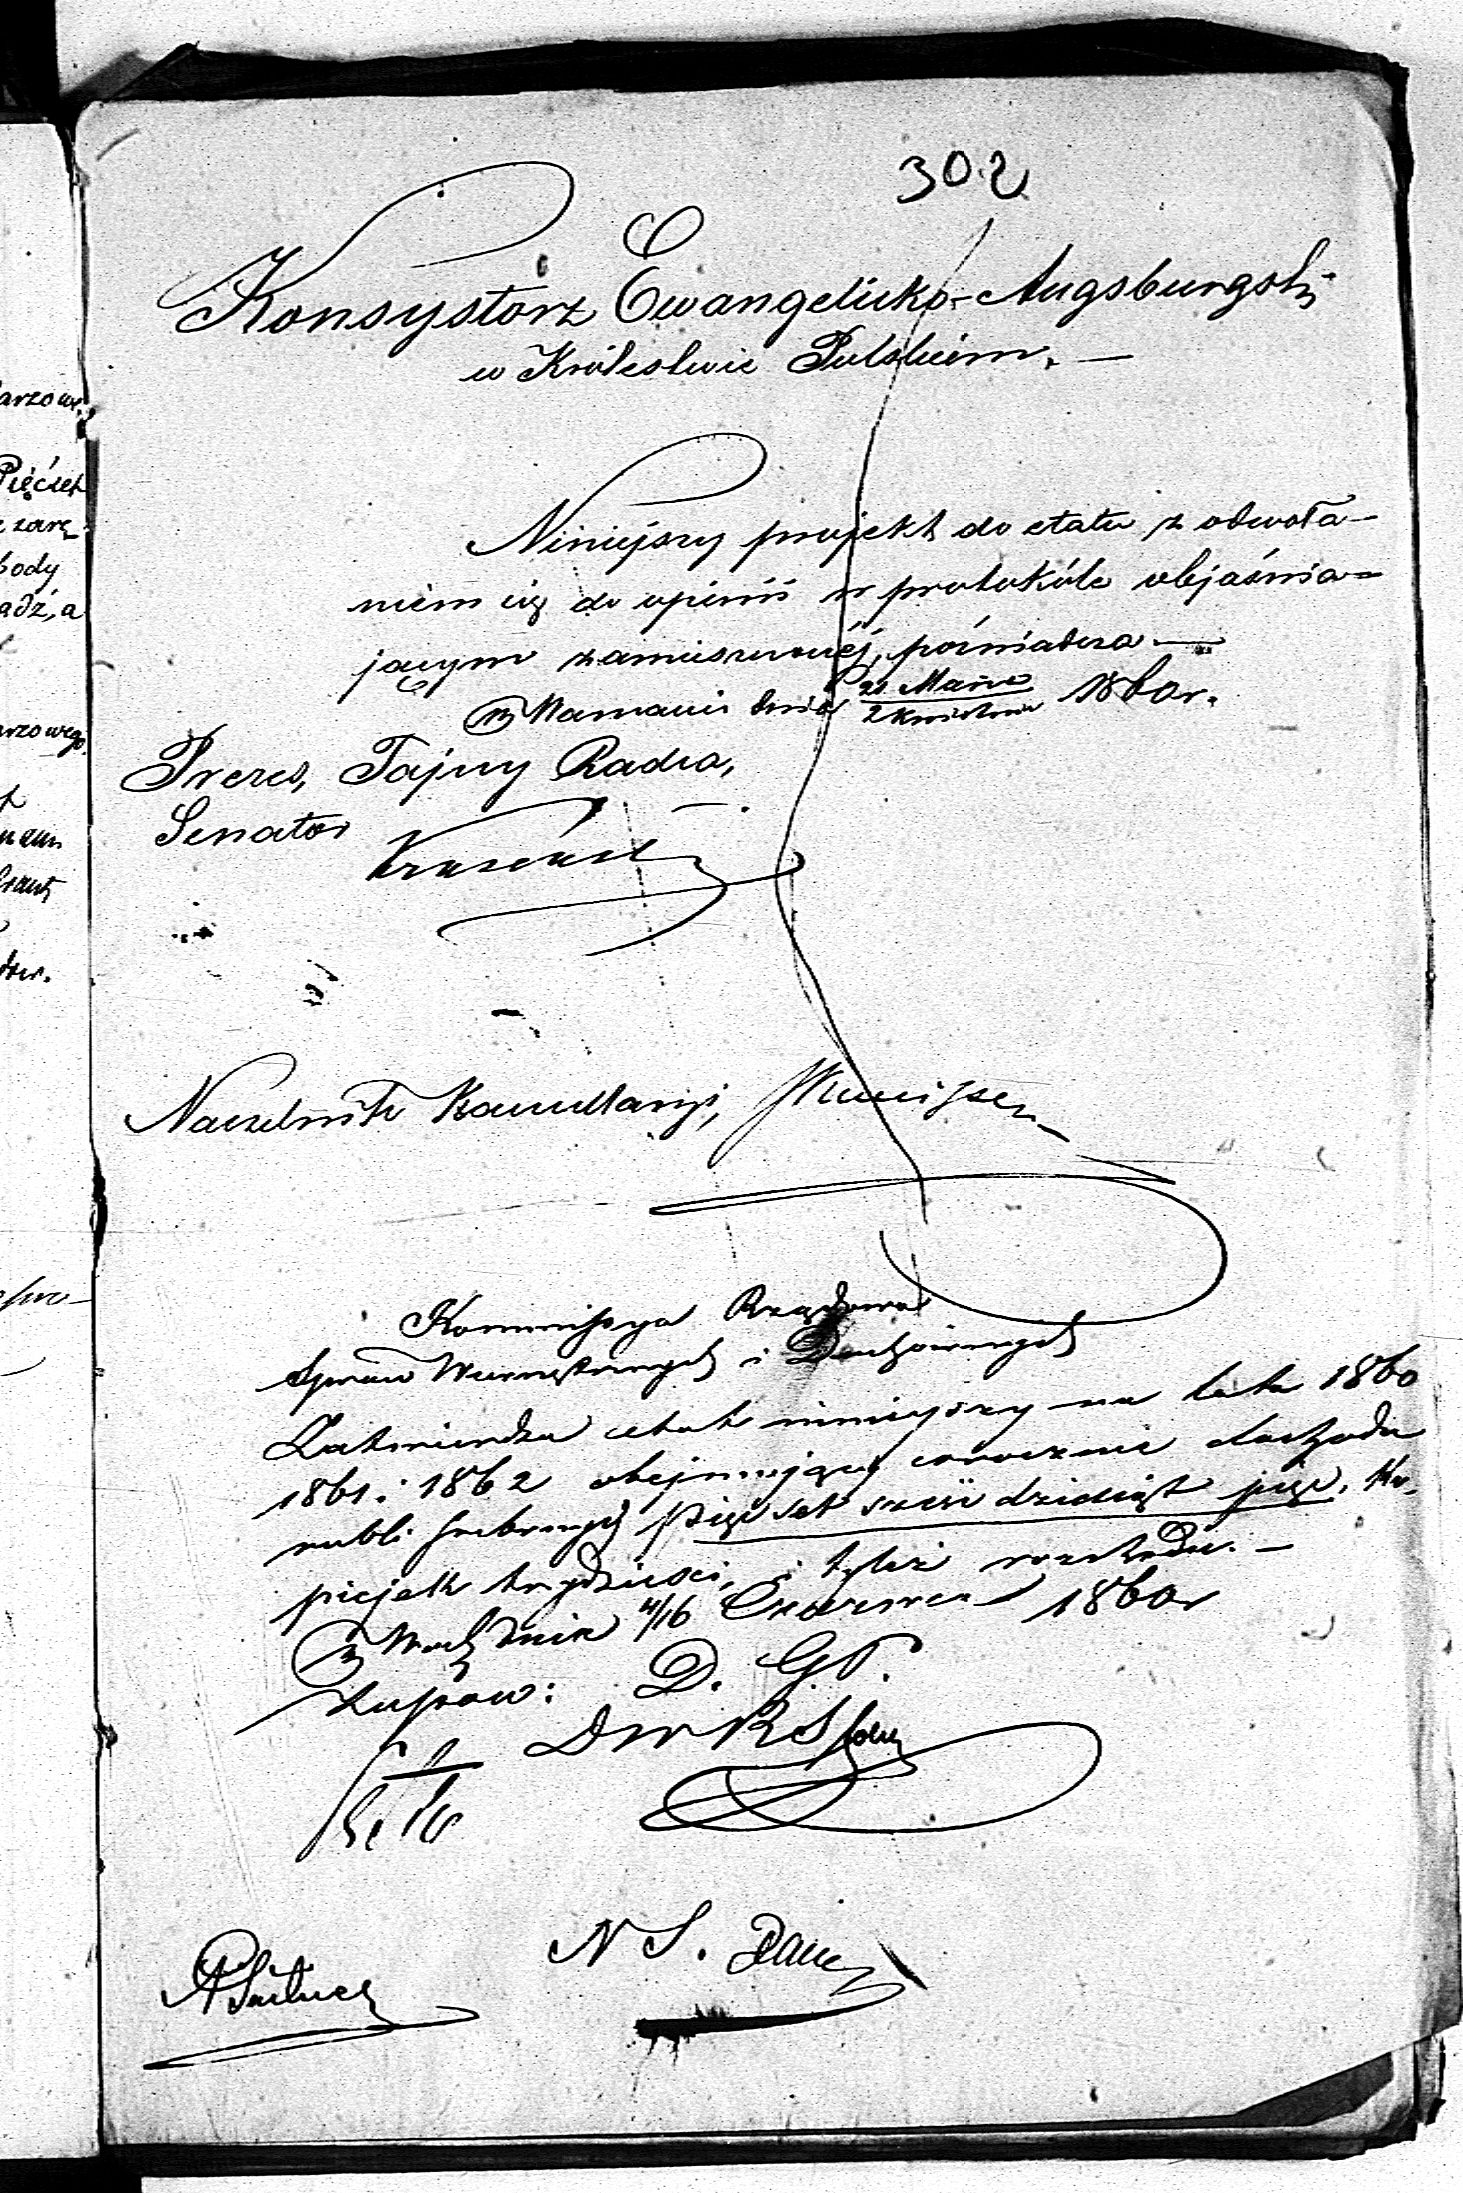 302
Konsystorz Ewangelicko-Augsburgski
w Królestwie Polskiem.
Niniejszy projekt do etatu z odwoła-
niem się do opinii w protokóle objaśnia-
jącym zamieszczonéj, poświadcza —
w Warszawie dnia 21 Marca / 2 Kwietnia 1860 r.
Prezes, Tajny Radca,
Senator
Naczelnik Kancellaryi,
Kommissya Rządowa
Spraw Wewnętrznych i Duchownych
Zatwierdza etat niniejszy na lata 1860
1861 i 1862 obejmujący corocznie dochodu
rubli srebrnych pięćset sześćdziesiąt pięć, ko-
piejek trzydzieści, i tyleż rozchodu. —
w Warsz. dnia 4/16 Czerwca 1860 r
D. G. P.
N S.
arzow.
Pięćset
body
adź, a
arzowego